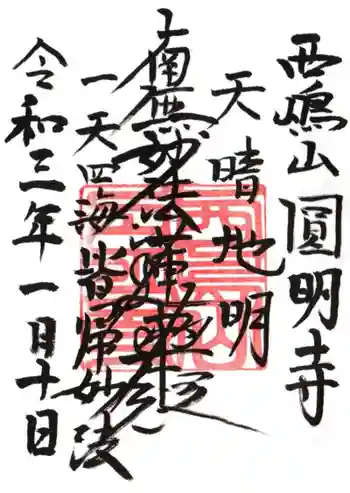 西鳴山圓明寺
天晴地明
南無妙法蓮華経
一天四海皆帰妙法
令和三年一月十日